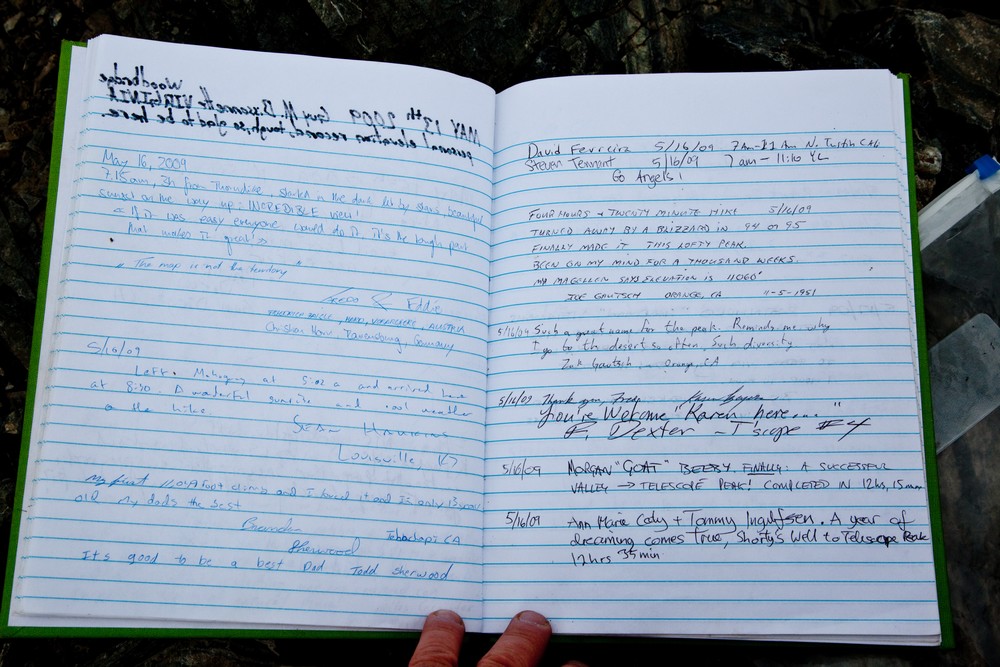 MAY 13th 2009 Guy M. Woodbridge VIRGINIA
personal elevation record, tough, so glad to be here.
May 16, 2009
7:15am, 3h from Thorndike, started in the dark lit by stars, beautiful
sunset on the way up = INCREDIBLE view!
"If it was easy everyone would do it. it's the tough part
that makes it great"
"The map is not the territory"
& Eddie
AUSTRIA
Christian Germany
5/16/09
Left Mahogany at 5:00 a and arrived here
at 8:30. A wonderful sunrise and cool weather
on the hike.
Susan
Louisville, KY
My first 11,049 foot climb and I loved it and I is only 13 years
old my dads the best
Brandon
Sherwood Tehachapi CA
It's good to be a best Dad Todd Sherwood
David Ferreira 5/16/09 7am-11 Am N. Tustin CA
Steven Tennant 5/16/09 7am - 11:10 YL
Go Angels!
FOUR HOURS + TWENTY MINUTE HIKE 5/16/09
TURNED AWAY BY A BLIZZARD IN 94 OR 95
FINALLY MADE IT THIS LOFTY PEAK.
BEEN ON MY MIND FOR A THOUSAND WEEKS.
MY MAGELLEN SAYS ELEVATION IS 11060'
JOE GAUTSCH ORANGE, CA 11-5-1951
5/16/09 Such a great name for the peak. Reminds me why
I go to the desert so often. Such diversity
Zak Gautsch - Orange, CA
5/16/09 Thank you, Fredy
You're Welcome "Karen here..."
F. Dexter - T'scope #4
5/16/09 MORGAN "GOAT" BEEBY. FINALLY: A SUCCESSFUL
VALLEY → TELESCOPE PEAK! COMPLETED IN 12hs, 15min
5/16/09 Ann Marie Caly + Tommy Ingulfsen. A year of
dreaming comes true, Shorty's Well to Telescope Peak
12hrs 35min